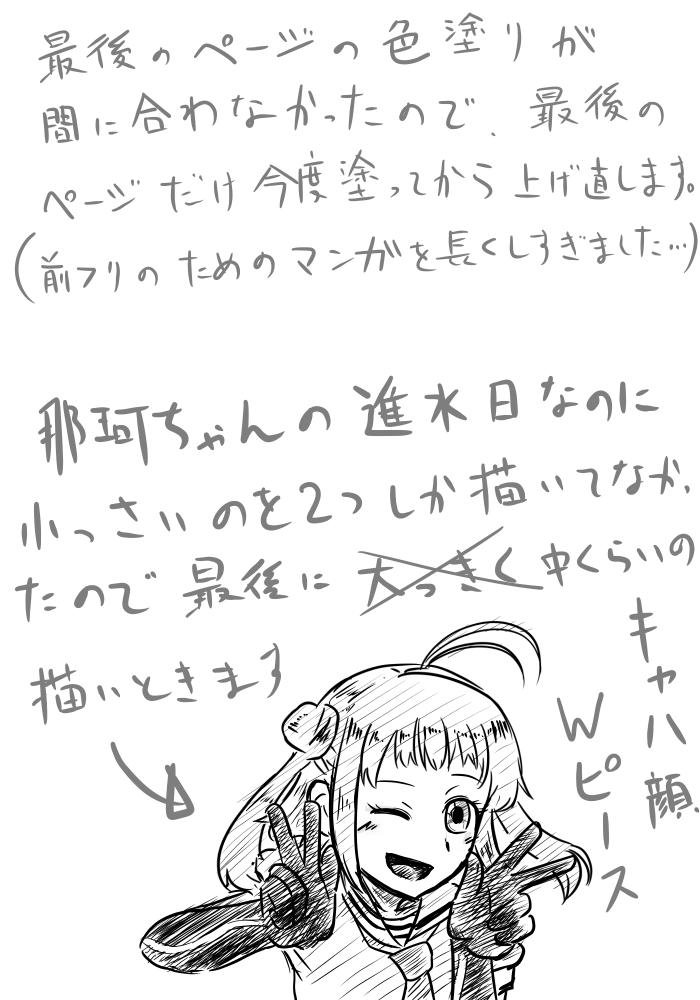 最後のページの色塗りが
間に合わなかったので、最後の
ページだけ今度塗ってから上げ直します。
(前フリのためのマンガを長くしすぎました…)
那珂ちゃんの進水日なのに
小っさいのを2つしか描いてなかっ
たので最後に大っきく中くらいの
描いときます
キャハ顔
Wピース